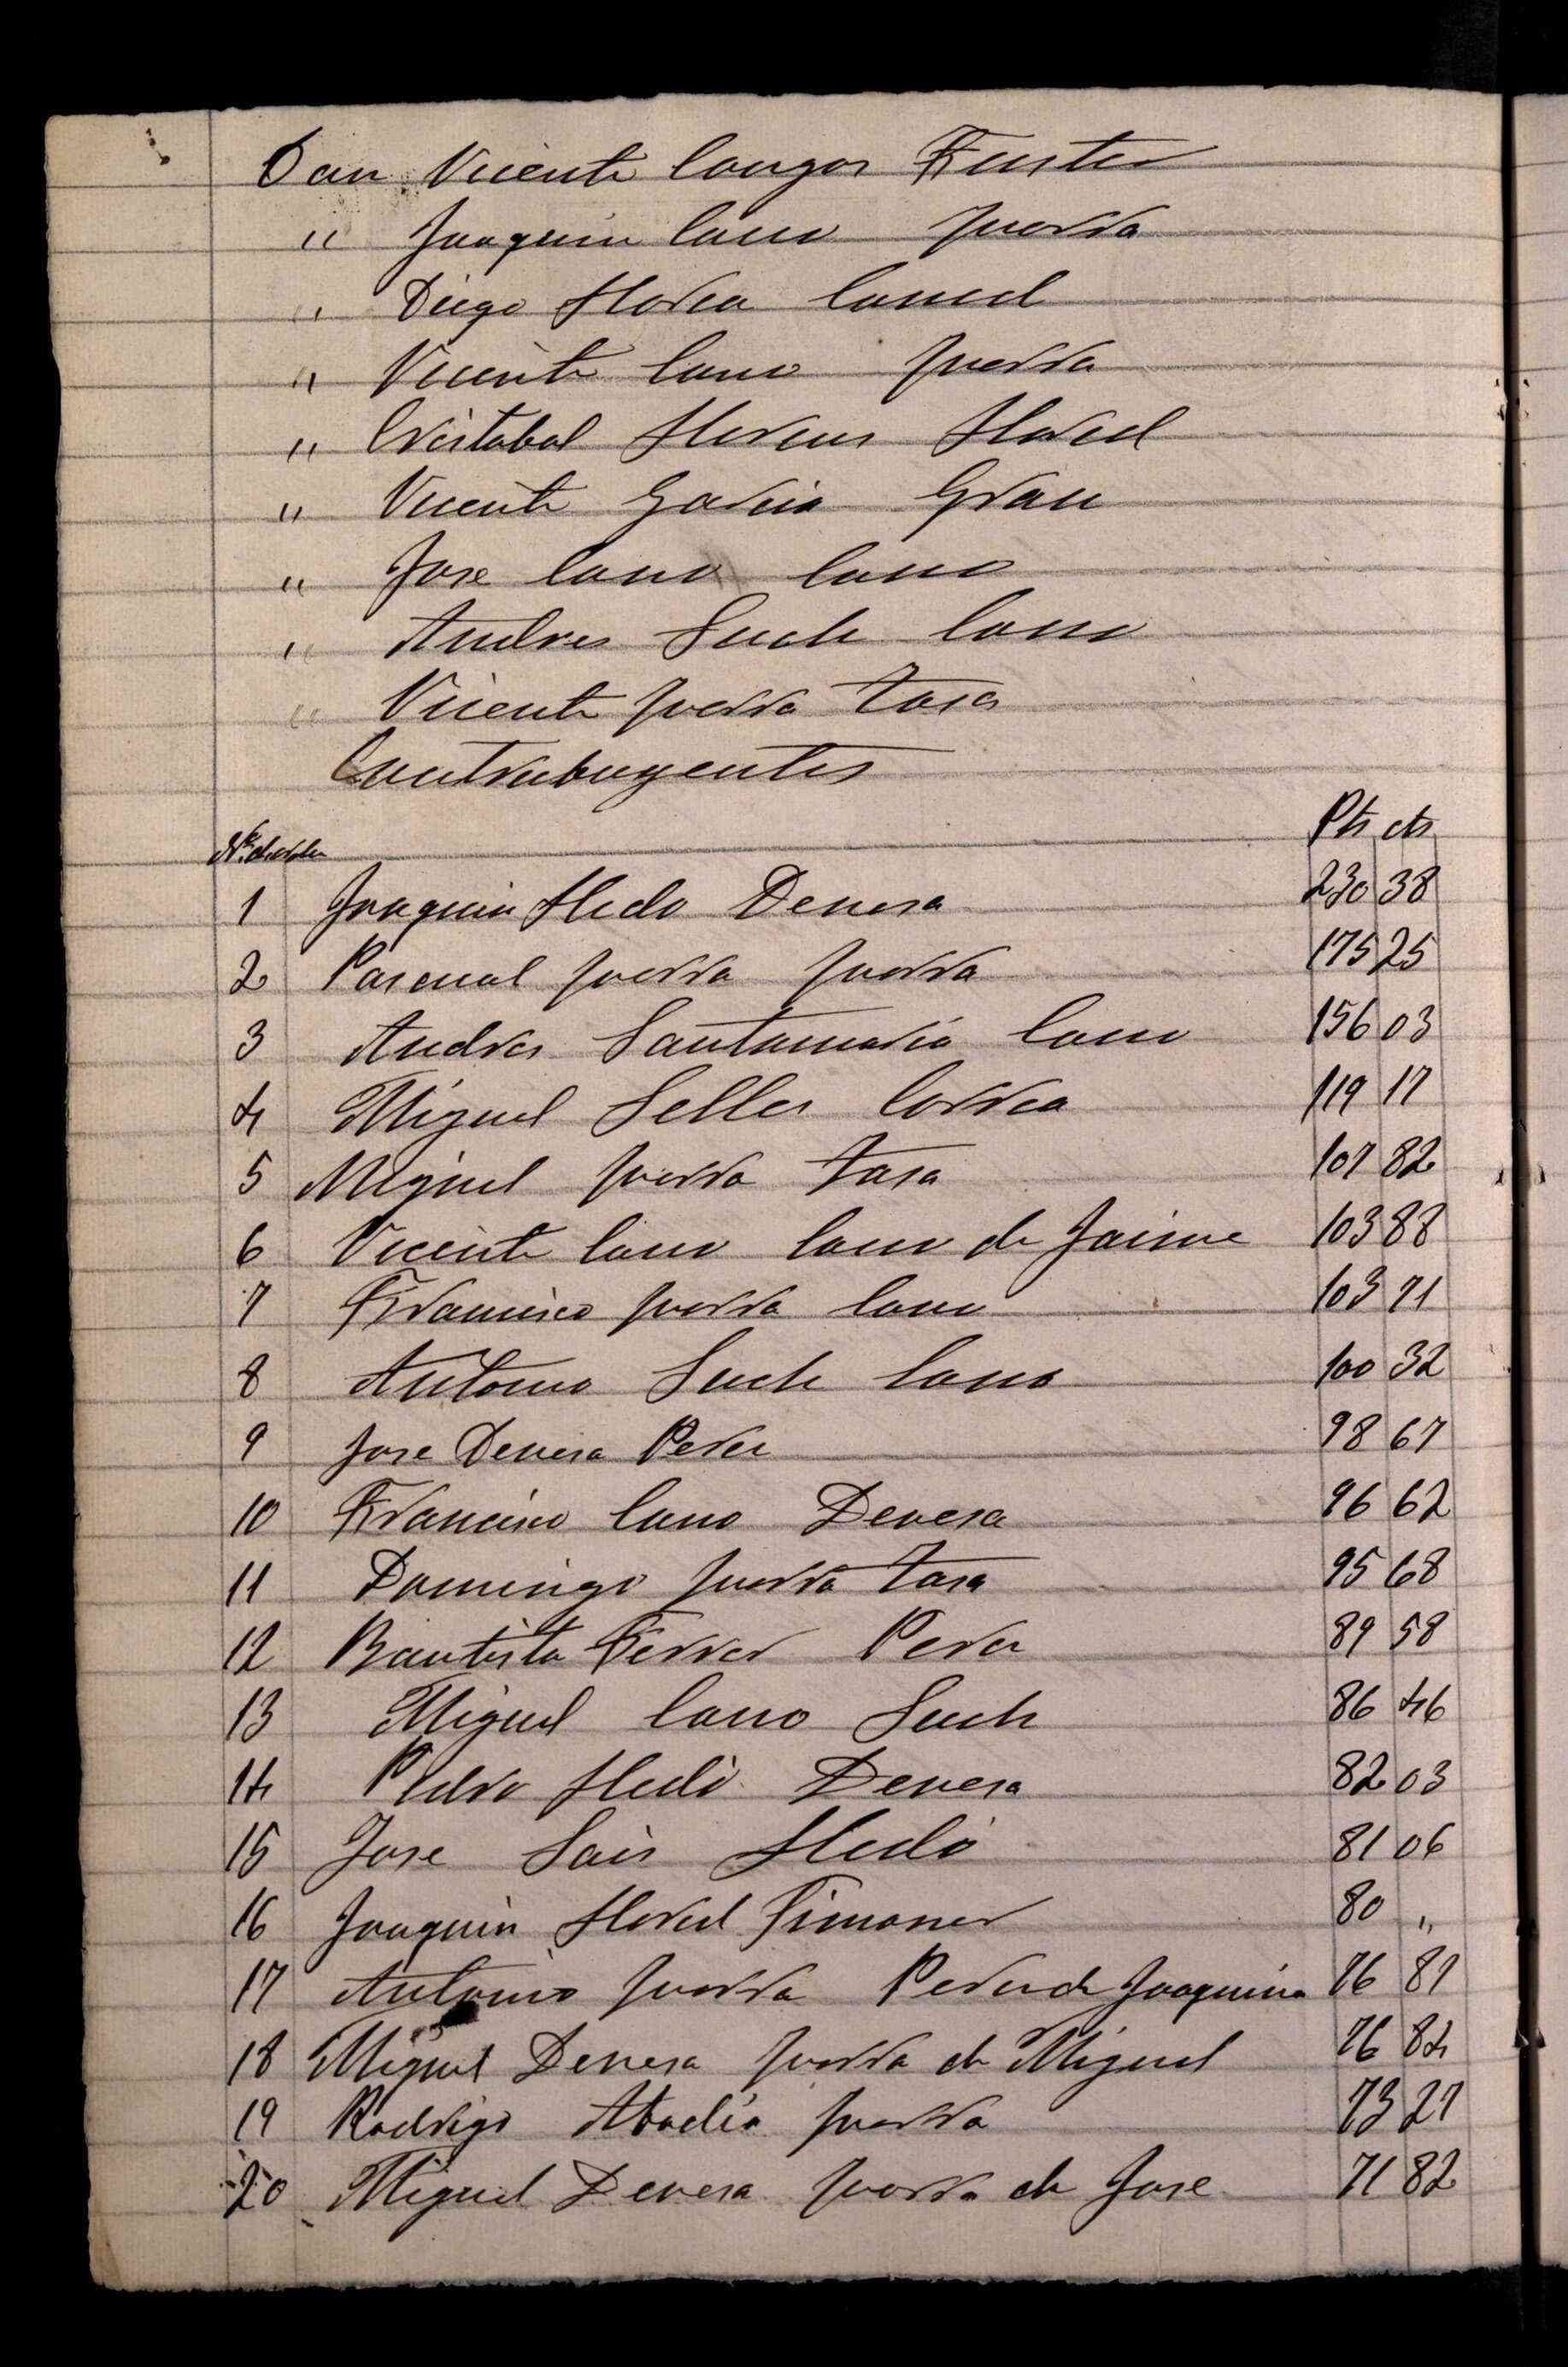 Don Vicente Congos Fuster
" Joaquin Cano Yvorra
" Diego Llorca Caucel
" Vicente Cano Yvorra
" Cristobal Llorens Lloret
" Vicente Garcia Grau
" Jose Cano Cano
" Andres Such Cano
" Vicente Yvorra Tasa
Contrubuyentes
Pts cts
1 Joaquin Lledo Devesa 230 38
2 Pascual Yvorra Yvorra 175 25
3 Andres Santamaria Cano 156 03
4 Miguel Selles Correa 119 17
5 Miguel Yvorra Tasa 107 82
6 Vicente Cano Cano de Jaime 103 88
7 Francisco Yvorra Cano 103 71
8 Antonio Such Cano 100 32
9 Jose Devesa Perez 98 67
10 Francisco Cano Devesa 96 62
11 Domingo Yvorra Tasa 95 68
12 Bautista Ferrer Perez 89 58
13 Miguel Cano Such 86 46
14 Pedro Lledó Devesa 82 03
15 Jose Sais Lledó 81 06
16 Joaquin Lloret Timoner 80 "
17 Antonio Yvorra Perez de Joaquina 76 87
18 Miguel Devesa Yvorra de Miguel 76 84
19 Rodrigo Abadía Yvorra 73 27
20 Miguel Devesa Yvorra de Jose 71 82